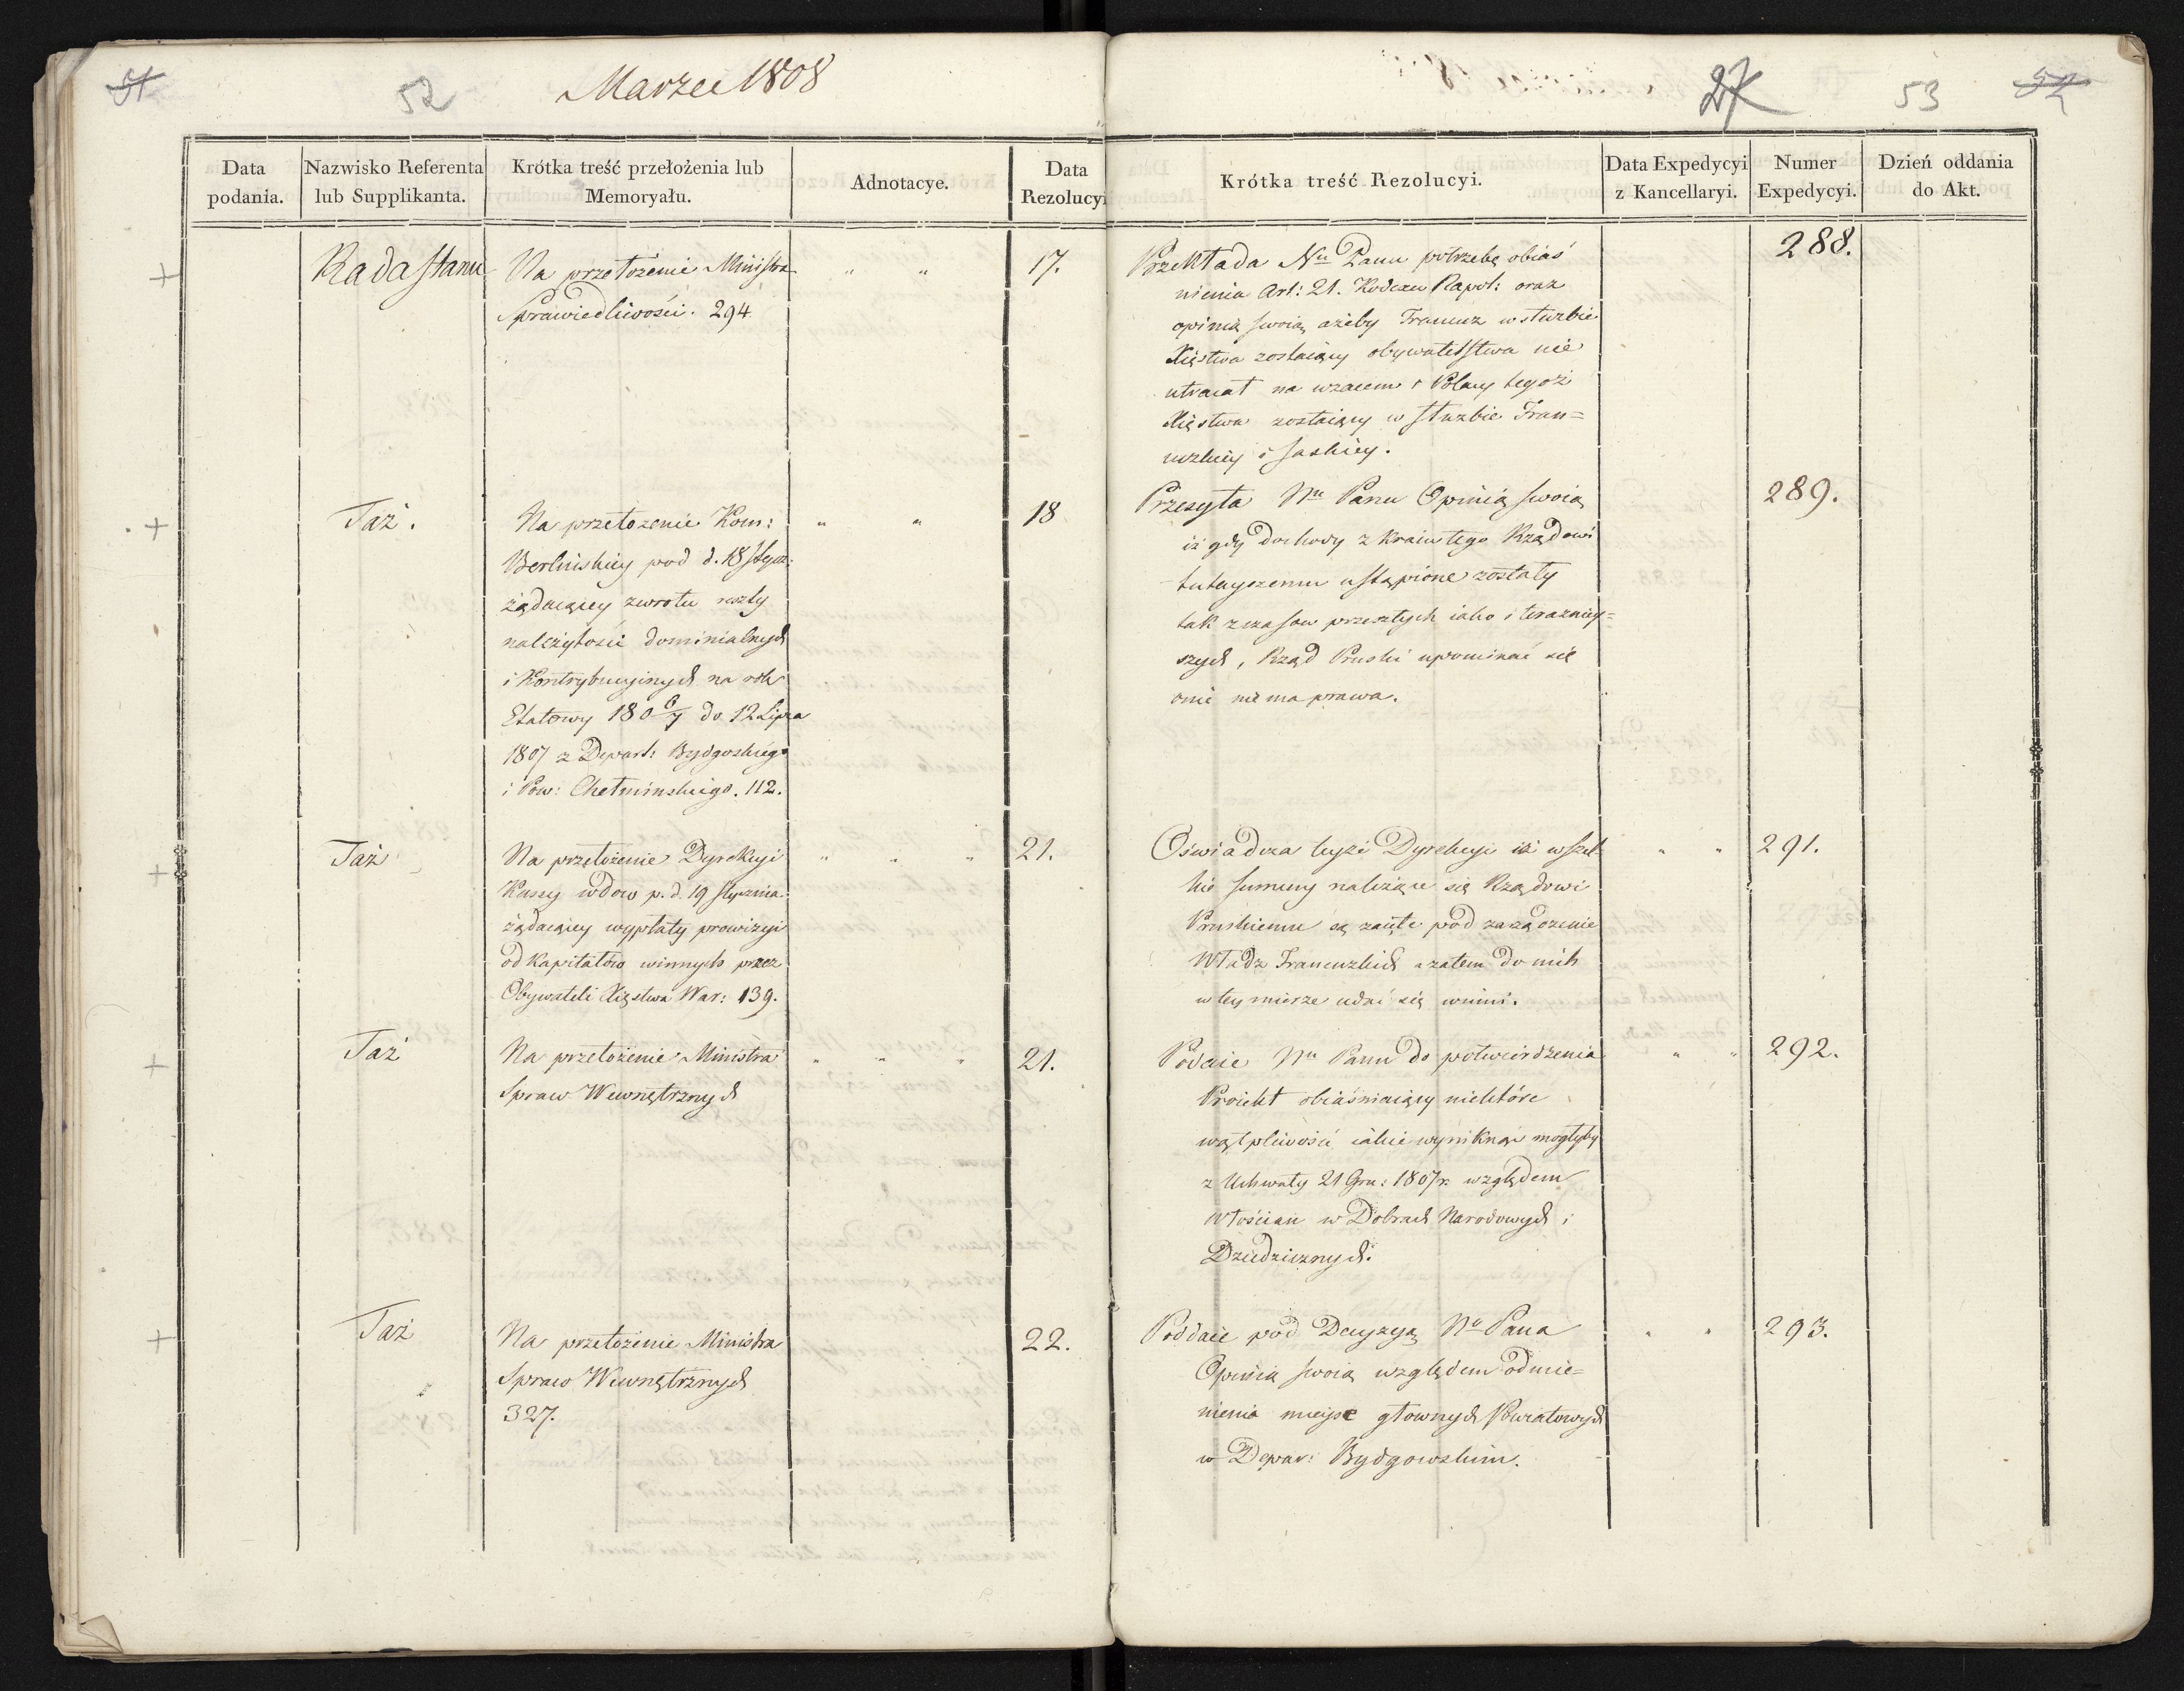 51
52
Marzec 1808
27
53
52
Data podania.
Nazwisko Referenta lub Supplikanta.
Krótka treść przełożenia lub Memoryału.
Adnotacye.
Data Rezolucyi
Krótka treść Rezolucyi.
Data Expedycyi z Kancellaryi.
Numer Expedycyi.
Dzień oddania do Akt.
+
Rada Stanu
Na przełożenie Ministra
Sprawiedliwości. 294
" "
17.
Przekłada Nu Panu potrzebę obiaś
nienia Art: 21. Kodexu Napol: oraz
opinią swoią ażeby Francuz w służbie
Xięstwa zostaiący obywatelstwa nie
utracał na wzaiem i Polacy tegoż
Xięstwa zostaiący w służbie Fran=
cuzkiey i saskiey.
288.
+
Taż.
Na przełożenie Kom:
Berlińskiey pod d. 18 stycz:
żądaiącey zwrotu reszty
należytości dominialnych
i Kontrybucyinych na rok
Etatowy 180 6/7 do 12 Lipca
1807 z Depart: Bydgoskiego
i Pow: Chełmińskiego. 112.
" "
18
Przesyła Nu Panu Opinią swoią
iż gdy dochody z kraiu tego Rządowi
tuteyszemu ustąpione zostały
tak z czasów przeszłych iako i teraźniey=
szych, Rząd Pruski upominać się
o nie nie ma prawa.
289.
+
Taż
Na przełożenie Dyrekcyi
Kassy wdow p. d. 19 stycznia
żądaiącey wypłaty prowizyi
od Kapitałów winnych przez
Obywateli Xięstwa War: 139.
" " "
21.
Oświadcza teyże Dyrekcyi iż wszel
kie summy należące się Rządowi
Pruskiemu są zaięte pod
Władz Francuzkich a zatem do nich
w tey mierze udać się winni.
" "
291.
+
Taż
Na przełożenie Ministra
Spraw Wewnętrznych
" " "
21.
Podaie Nu Panu do potwierdzenia
Proiekt obiaśniaiący niektóre
wątpliwości iakie wyniknąć mogłyby
z Uchwały 21 Gru: 1807 r. względem
Włościan w Dobrach Narodowych i
Dziedzicznych.
" "
292.
+
Taż
Na przełożenie Ministra
Spraw Wewnętrznych
327.
22.
Poddaie pod Decyzyą No Pana
Opinią swoią względem odmie=
nienia mieysc głownych Powiatowych
w Depar: Bydgowskim.
" "
293.